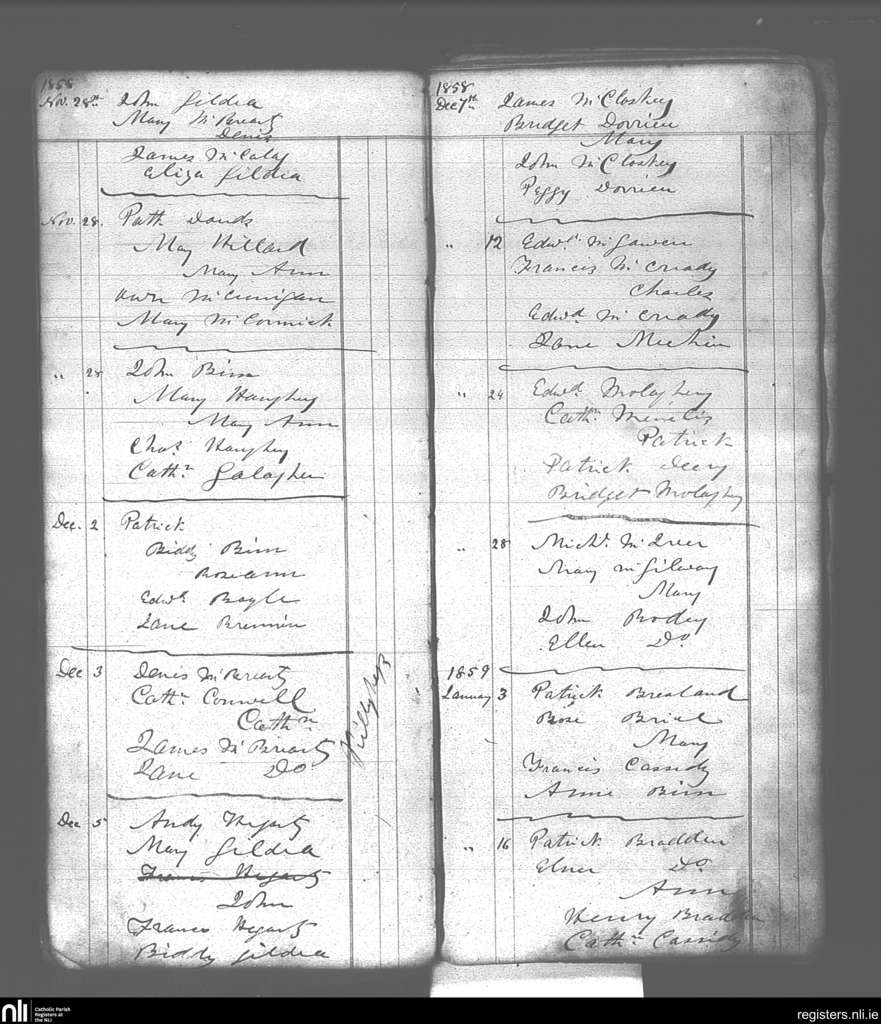 1858
Nov. 28th John Gildea
Mary McBrearty
Denis
James McCalay
Eliza Gildea
Nov. 28. Patk
May Hilland
Mary Ann
Own McCunigan
Mary McCormick
" 28 John Birn
Mary Haughey
Mary Ann
Chas Haughey
Cathn Galagher
Dec. 2 Patrick
Biddy Birn
Roseann
Edwd Boyle
Jane Brennin
Dec 3 Denis McBrearty
Cathn Conwell
Cathn
James McBrearty
Jane Do
Killybegs
Dec 5 Andy Hegarty
Mary Gildea
Francis Hegarty
John
Francis Hegarty
Biddy Gildea
1858
Dec 7th James McCloskey
Bridget Dorrien
Mary
John McCloskey
Peggy Dorrien
" 12 Edwd McGowen
Francis McCready
Charles
Edwd McCready
Jane Meehin
" 24 Edwd Molaghey
Cathn
Patrick
Patrick Deery
Bridget Molaghey
" 28 Michl McIver
Mary McGilway
Mary
John Bodey
Ellen Do
1859
January 3 Patrick Bresland
Rose Briel
Mary
Francis Cassidy
Anne Birn
" 16 Patrick Bradden
Elner Do
Ann
Henry Bradden
Cathn Cassidy
nli
Catholic Parish
Registers at
the NLI
registers.nli.ie